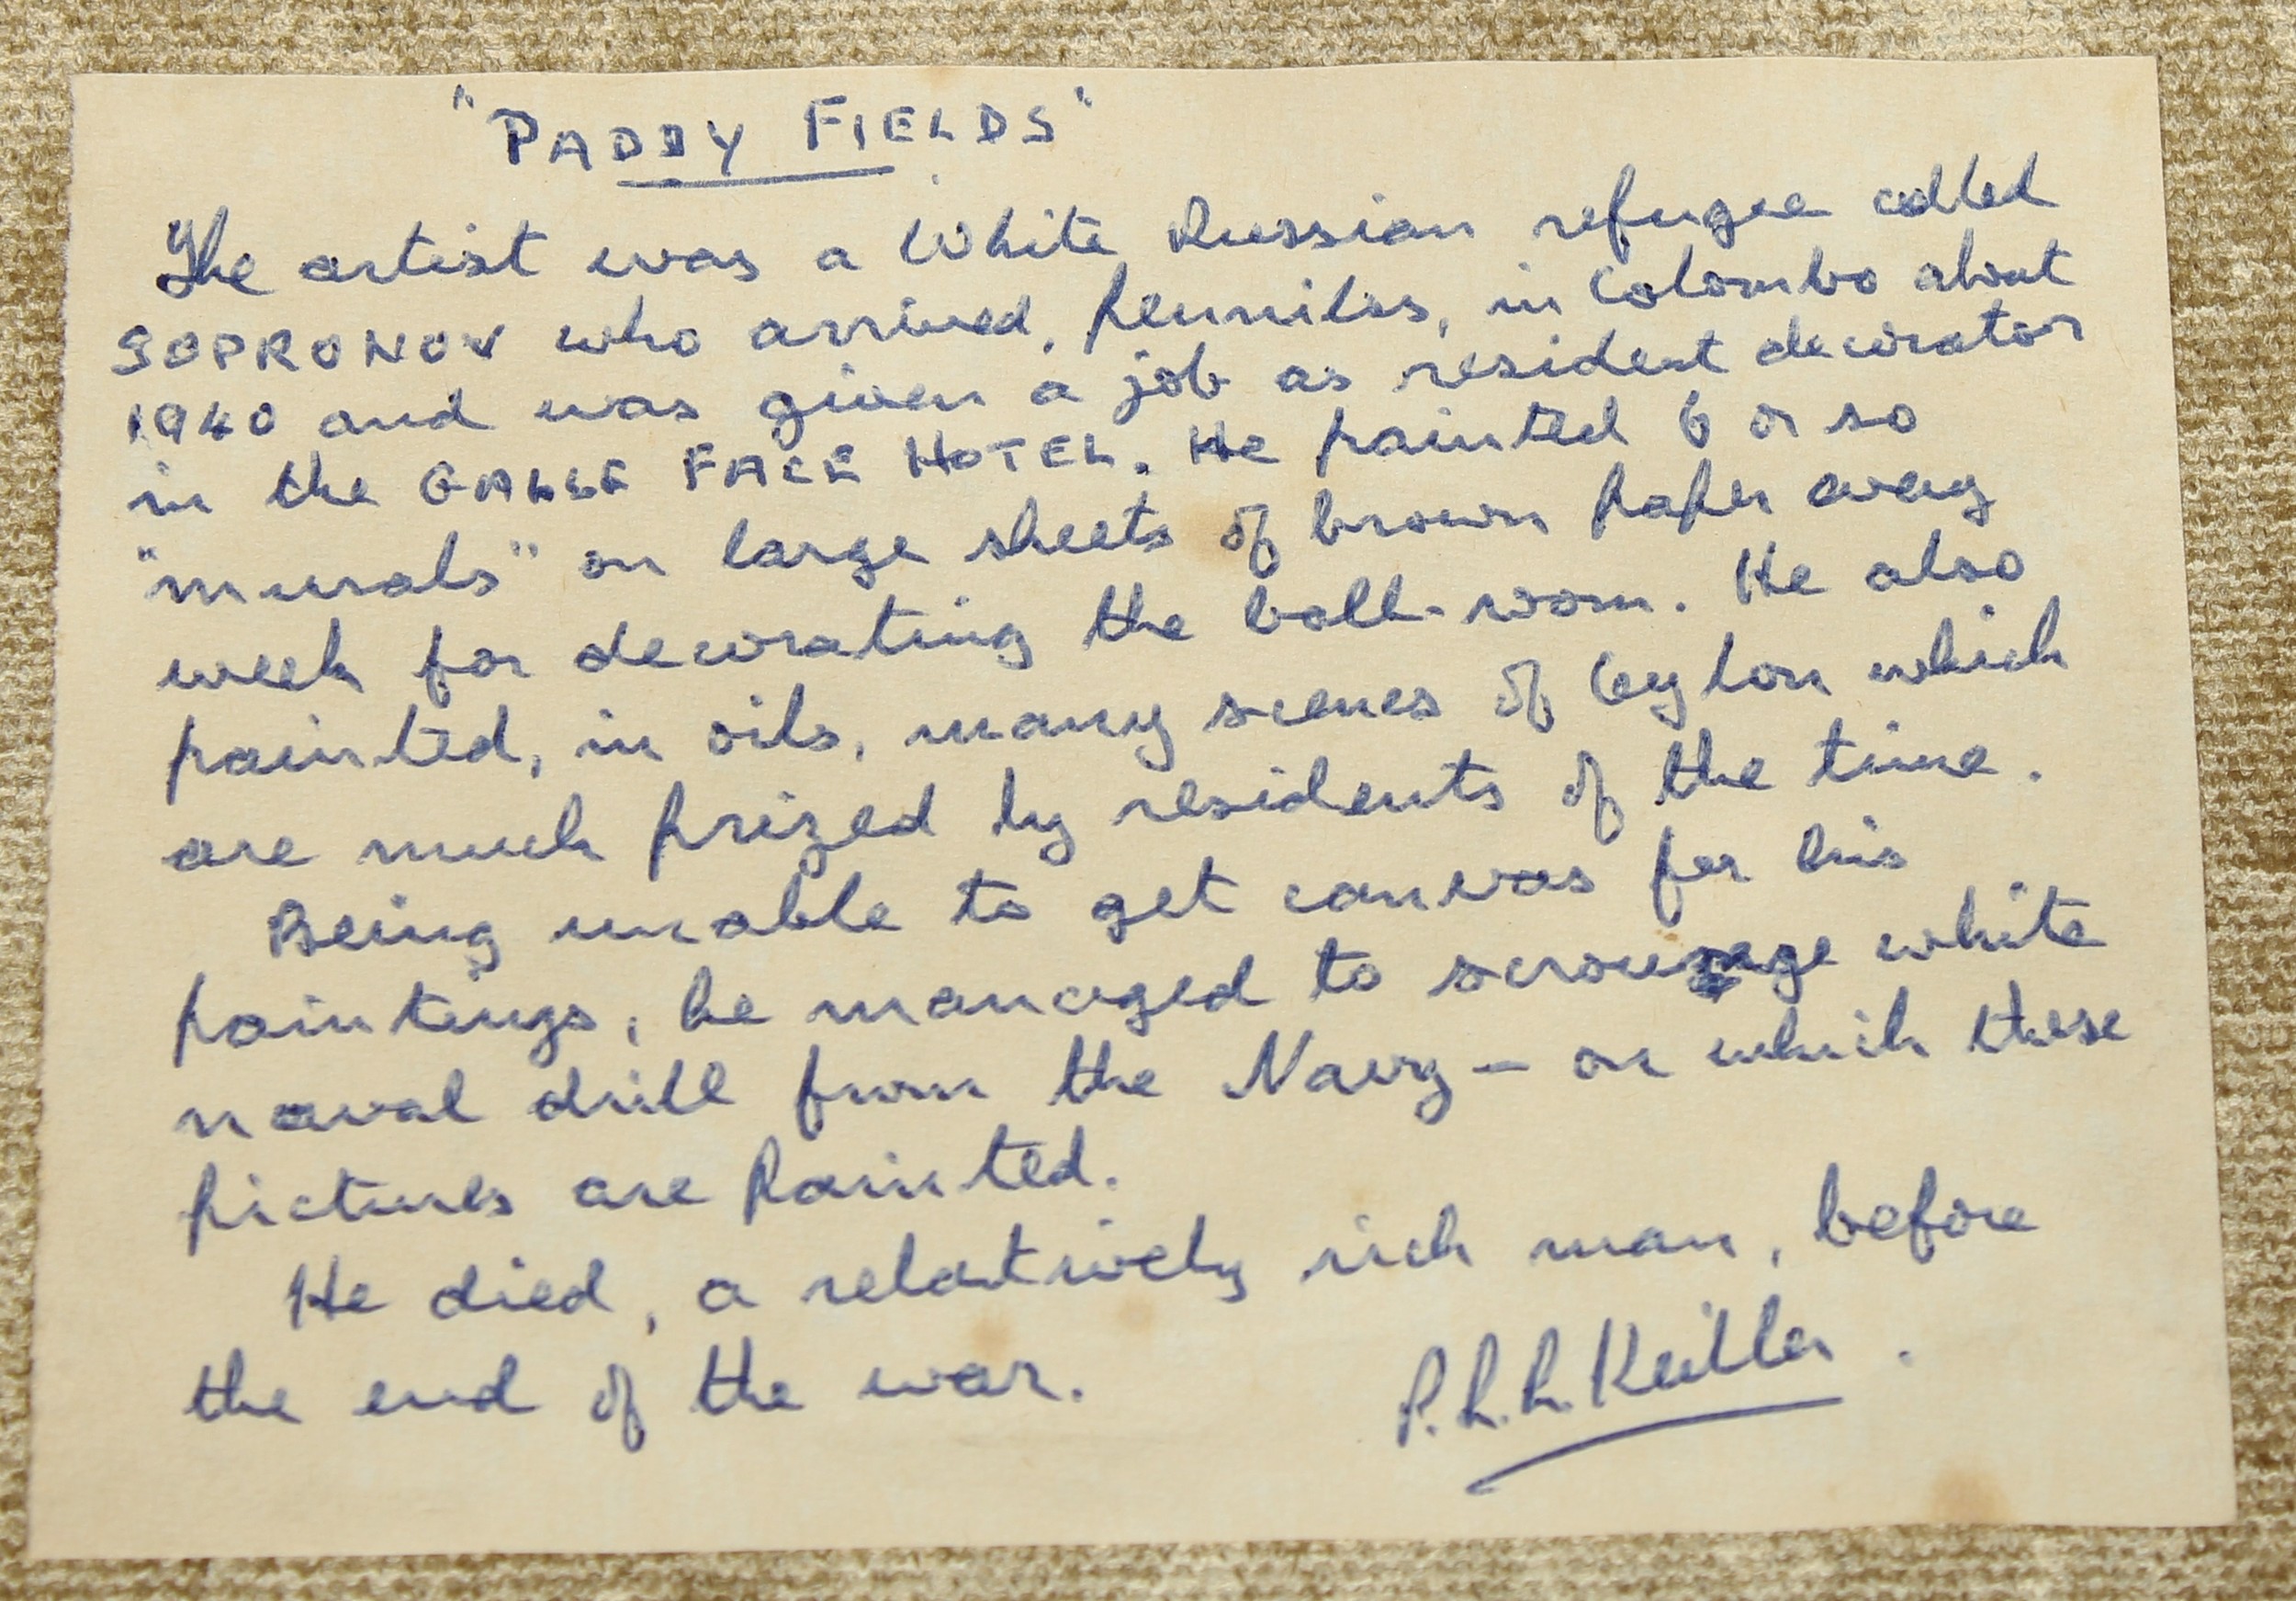 "PADDY FIELDS"
The artist was a White Russian refugee called
SOPRONOV who arrived, penniless, in Colombo about
1940 and was given a job as resident decorator
in the GALLE FACE HOTEL. He painted 6 or so
"murals" on large sheets of brown paper every
week for decorating the ball-room. He also
painted, in oils, many scenes of Ceylon which
are much prized by residents of the time.
Being unable to get canvas for his
paintings, he managed to scrounge white
naval drill from the Navy - on which these
pictures are painted.
He died, a relatively rich man, before
the end of the war.
P.L.L. Keiller.